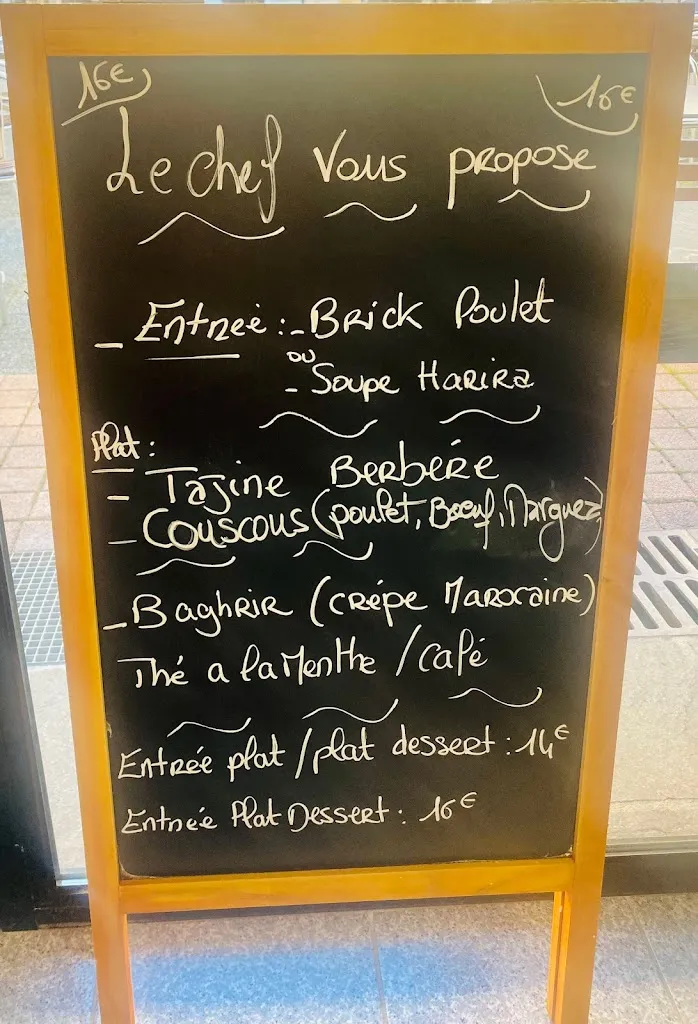 16€ 16€
Le chef Vous propose
- Entrée : - Brick Poulet
ou
- Soupe Harira
Plat :
- Tajine Berbére
- Couscous (poulet, Boeuf, Marguez)
- Baghrir (crépe Marocaine)
Thé a la Menthe / Café
Entrée plat / plat dessert : 14€
Entrée Plat Dessert : 16€